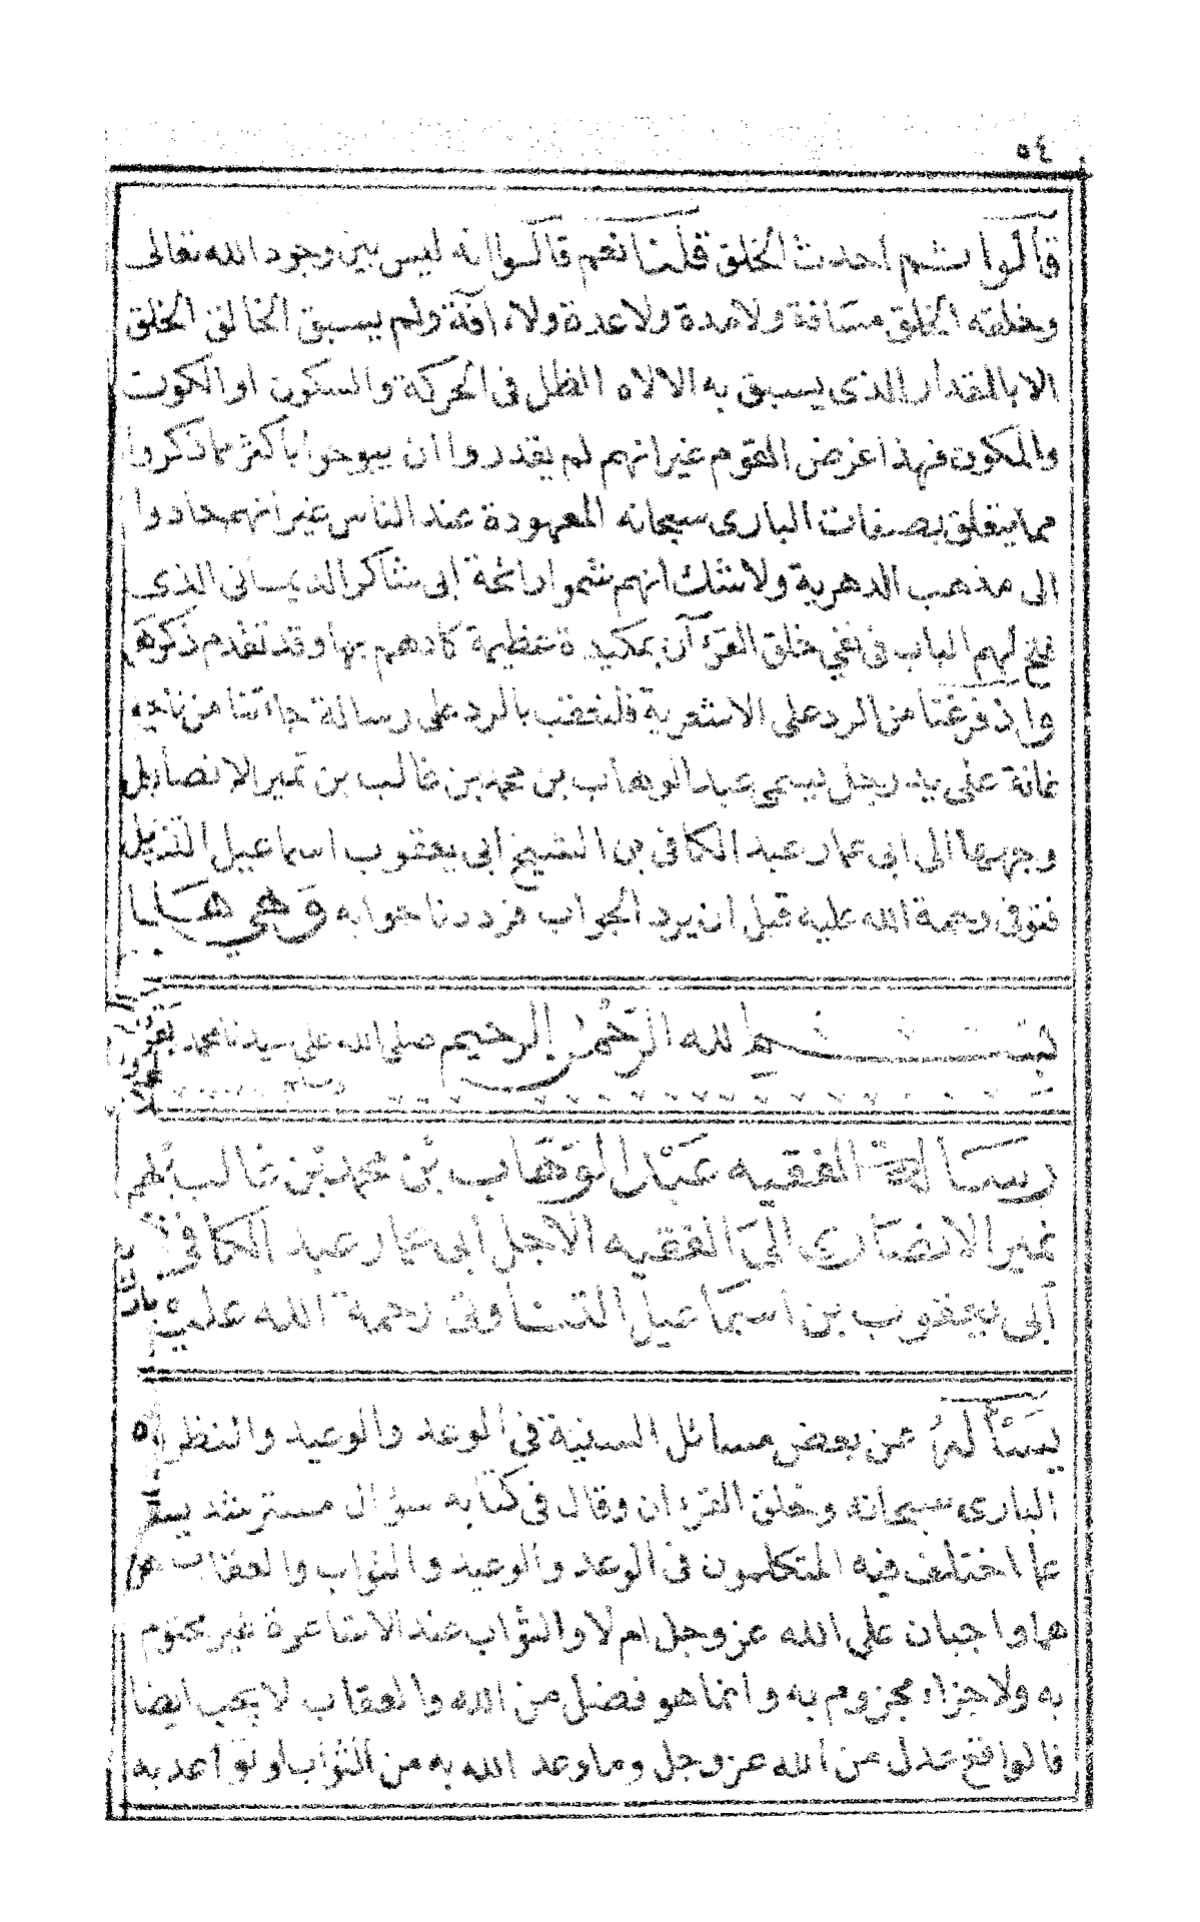 ٥٤
قالوا ثم احدث الخلق قلنا نعم قالوا انه ليس بين وجود الله تعالى
وخلقه الخلق مسافة ولا مدة ولا عدة ولاء افة ولم يسبق الخالق الخلق
الا بالمقدار الذى يسبق به الالاه الظل فى الحركة والسكون او الكون
والمكون فهذا غرض القوم غير انهم لم يقدروا ان يبوحوا بأكثر مما ذكروا
مما يتعلق بصفات البارى سبحانه المعهودة عند الناس غير انهم حادوا
الى مذهب الدهرية ولا شك انهم شموا رائحة ابى شاكر الديصانى الذى
فتح لهم الباب فى نفي خلق القرءآن بمكيدة عظيمة كادهم بها وقد تقدم ذكرها
واذ فرغنا من الرد على الاشعرية فلنعقب بالرد على رسالة جاءتنا من ناحية
غانة على يد رجل يسمى عبد الوهاب بن محمد بن غالب بن نمير الانصارى
وجهها الى ابى عمار عبد الكافى بن الشيخ ابى يعقوب اسماعيل
فتوفى رحمة الله عليه قبل ان يرد الجواب فرددنا جوابه وهي هذا
بسم الله الرحمن الرحيم صلى الله على سيدنا محمد
وسلم
رسالة الفقيه عبد الوهاب بن محمد بن غالب بن
نمير الانصارى الى الفقيه الاجل أبى عمار عبد الكافى بن
أبى يعقوب بن اسماعيل التناوتى رحمة الله عليه
يسأله عن بعض مسائل السنية فى الوعد والوعيد والنظر الى
البارى سبحانه وخلق القرءان وقال فى كتابه سؤال مسترشد
عما اختلف فيه المتكلمون فى الوعد والوعيد والثواب والعقاب هل
هما واجبان على الله عز وجل ام لا والثواب عند الاشاعرة غير محتوم
به ولا جزاء مجزوم به وانما هو فضل من الله والعقاب لا يجب ايضا
فالواقع عدل من الله عز وجل وما وعد الله به من الثواب او توّاعد به